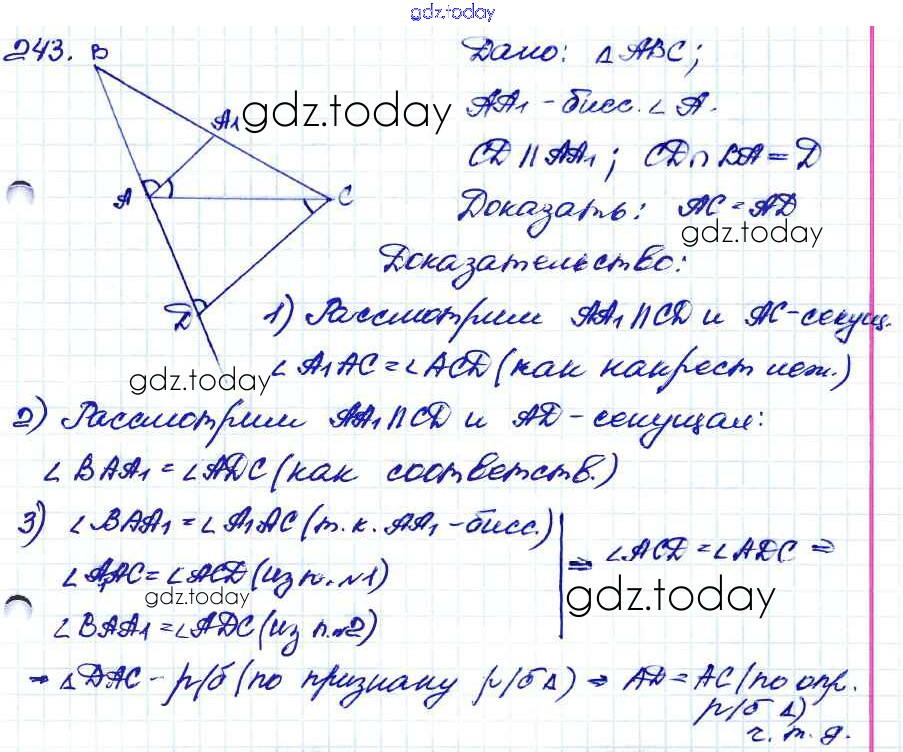 gdz.today
243.
B
A₁
A
C
D
gdz.today
Дано: △ABC;
AA₁ - бисс. ∠A.
CD || AA₁; CD ∩ BA = D
Доказать: AC = AD
gdz.today
Доказательство:
1) Рассмотрим AA₁ || CD и AC - секущ.
∠A₁AC = ∠ACD (как накрест леж.)
gdz.today
2) Рассмотрим AA₁ || CD и AD - секущая:
∠BAA₁ = ∠ADC (как соответств.)
3) ∠BAA₁ = ∠A₁AC (т.к. AA₁ - бисс.)
∠A₁AC = ∠ACD (из п. №1)
gdz.today
∠BAA₁ = ∠ADC (из п. №2)
⇒ ∠ACD = ∠ADC ⇒
gdz.today
⇒ △DAC - р/б (по признаку р/б △) ⇒ AD = AC (по опр.
р/б △)
ч.т.д.